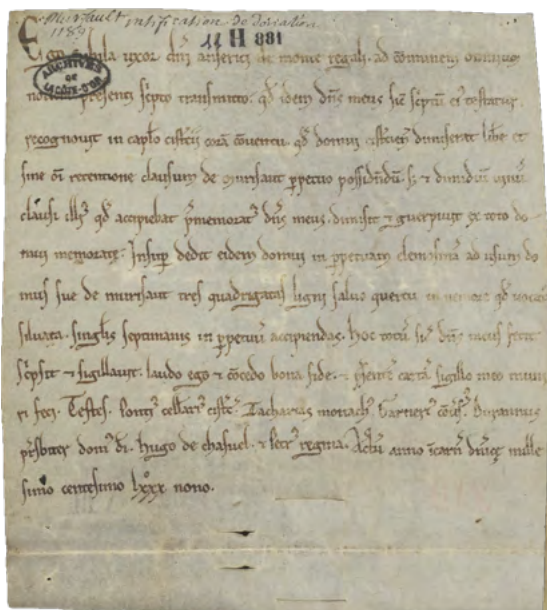 Meursault ratification de donation
1189
11 H 881
ARCHIVES
DE
LA CÔTE-D'OR
Ego uxor dñi anserici de monte regali. ad cõmunem omnium
noticiã presenti scripto transmitto. qđ idem dñs meus sic scriptũ ei' testatur
recognovit in capľo cistercii corã cõventu. qđ domui cistercien̄ dimiserat libere et
sine õi retentione clausum de murisaut perpetuo possidendũ. sʒ ⁊ dimidiũ
clausi illi' qđ accipiebat p̃memorat' dñs meus. dimisit ⁊ guerpivit ex toto do
mui memorate. Insup dedit eidem domui in perpetuam elemosinã ad usum do
mus sue de murisaut tres quadrigatas ligni salvo quercu in nemore qđ vocat̃
silvata. singľis septimanis in perpetuũ accipiendas. hoc totũ sic dñs meus fecit
scripsit ⁊ sigillavit. laudo ego ⁊ cõcedo bona fide. ⁊ p̃sentẽ cartã sigillo meo muni
ri feci. Testes. ponti' cellari' cisterc̃. Zacharias monach'. Garneri' cõvs̃'. Durannus
p̃sbiter dom' di. hugo de chasuel. ⁊ regina. Actũ anno ĩcarñ dñice mille
simo centesimo lxxx nono.